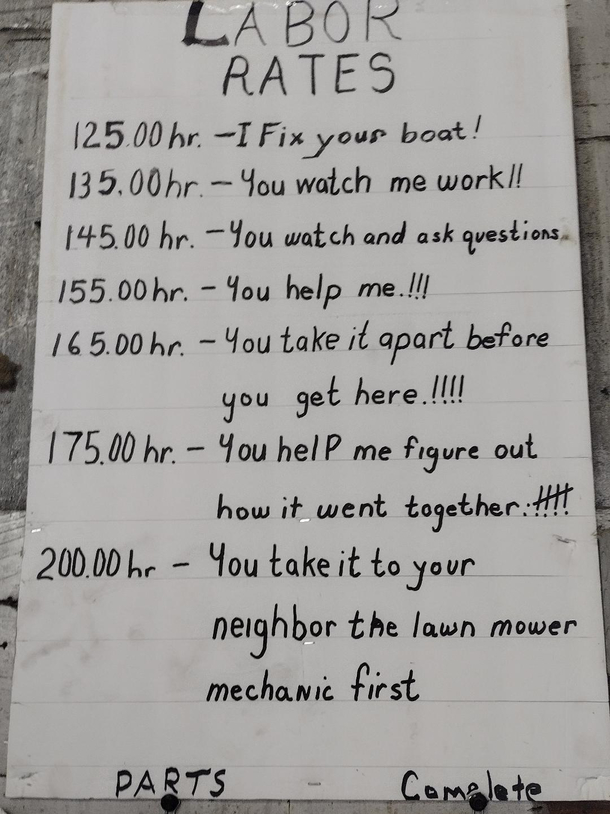 LABOR
RATES
125.00 hr. - I Fix your boat!
135.00 hr. - You watch me work!!
145.00 hr. - You watch and ask questions.
155.00 hr. - You help me.!!!
165.00 hr. - You take it apart before
you get here.!!!!
175.00 hr. - You help me figure out
how it went together.!!!!!
200.00 hr - You take it to your
neighbor the lawn mower
mechanic first
PARTS - Complete